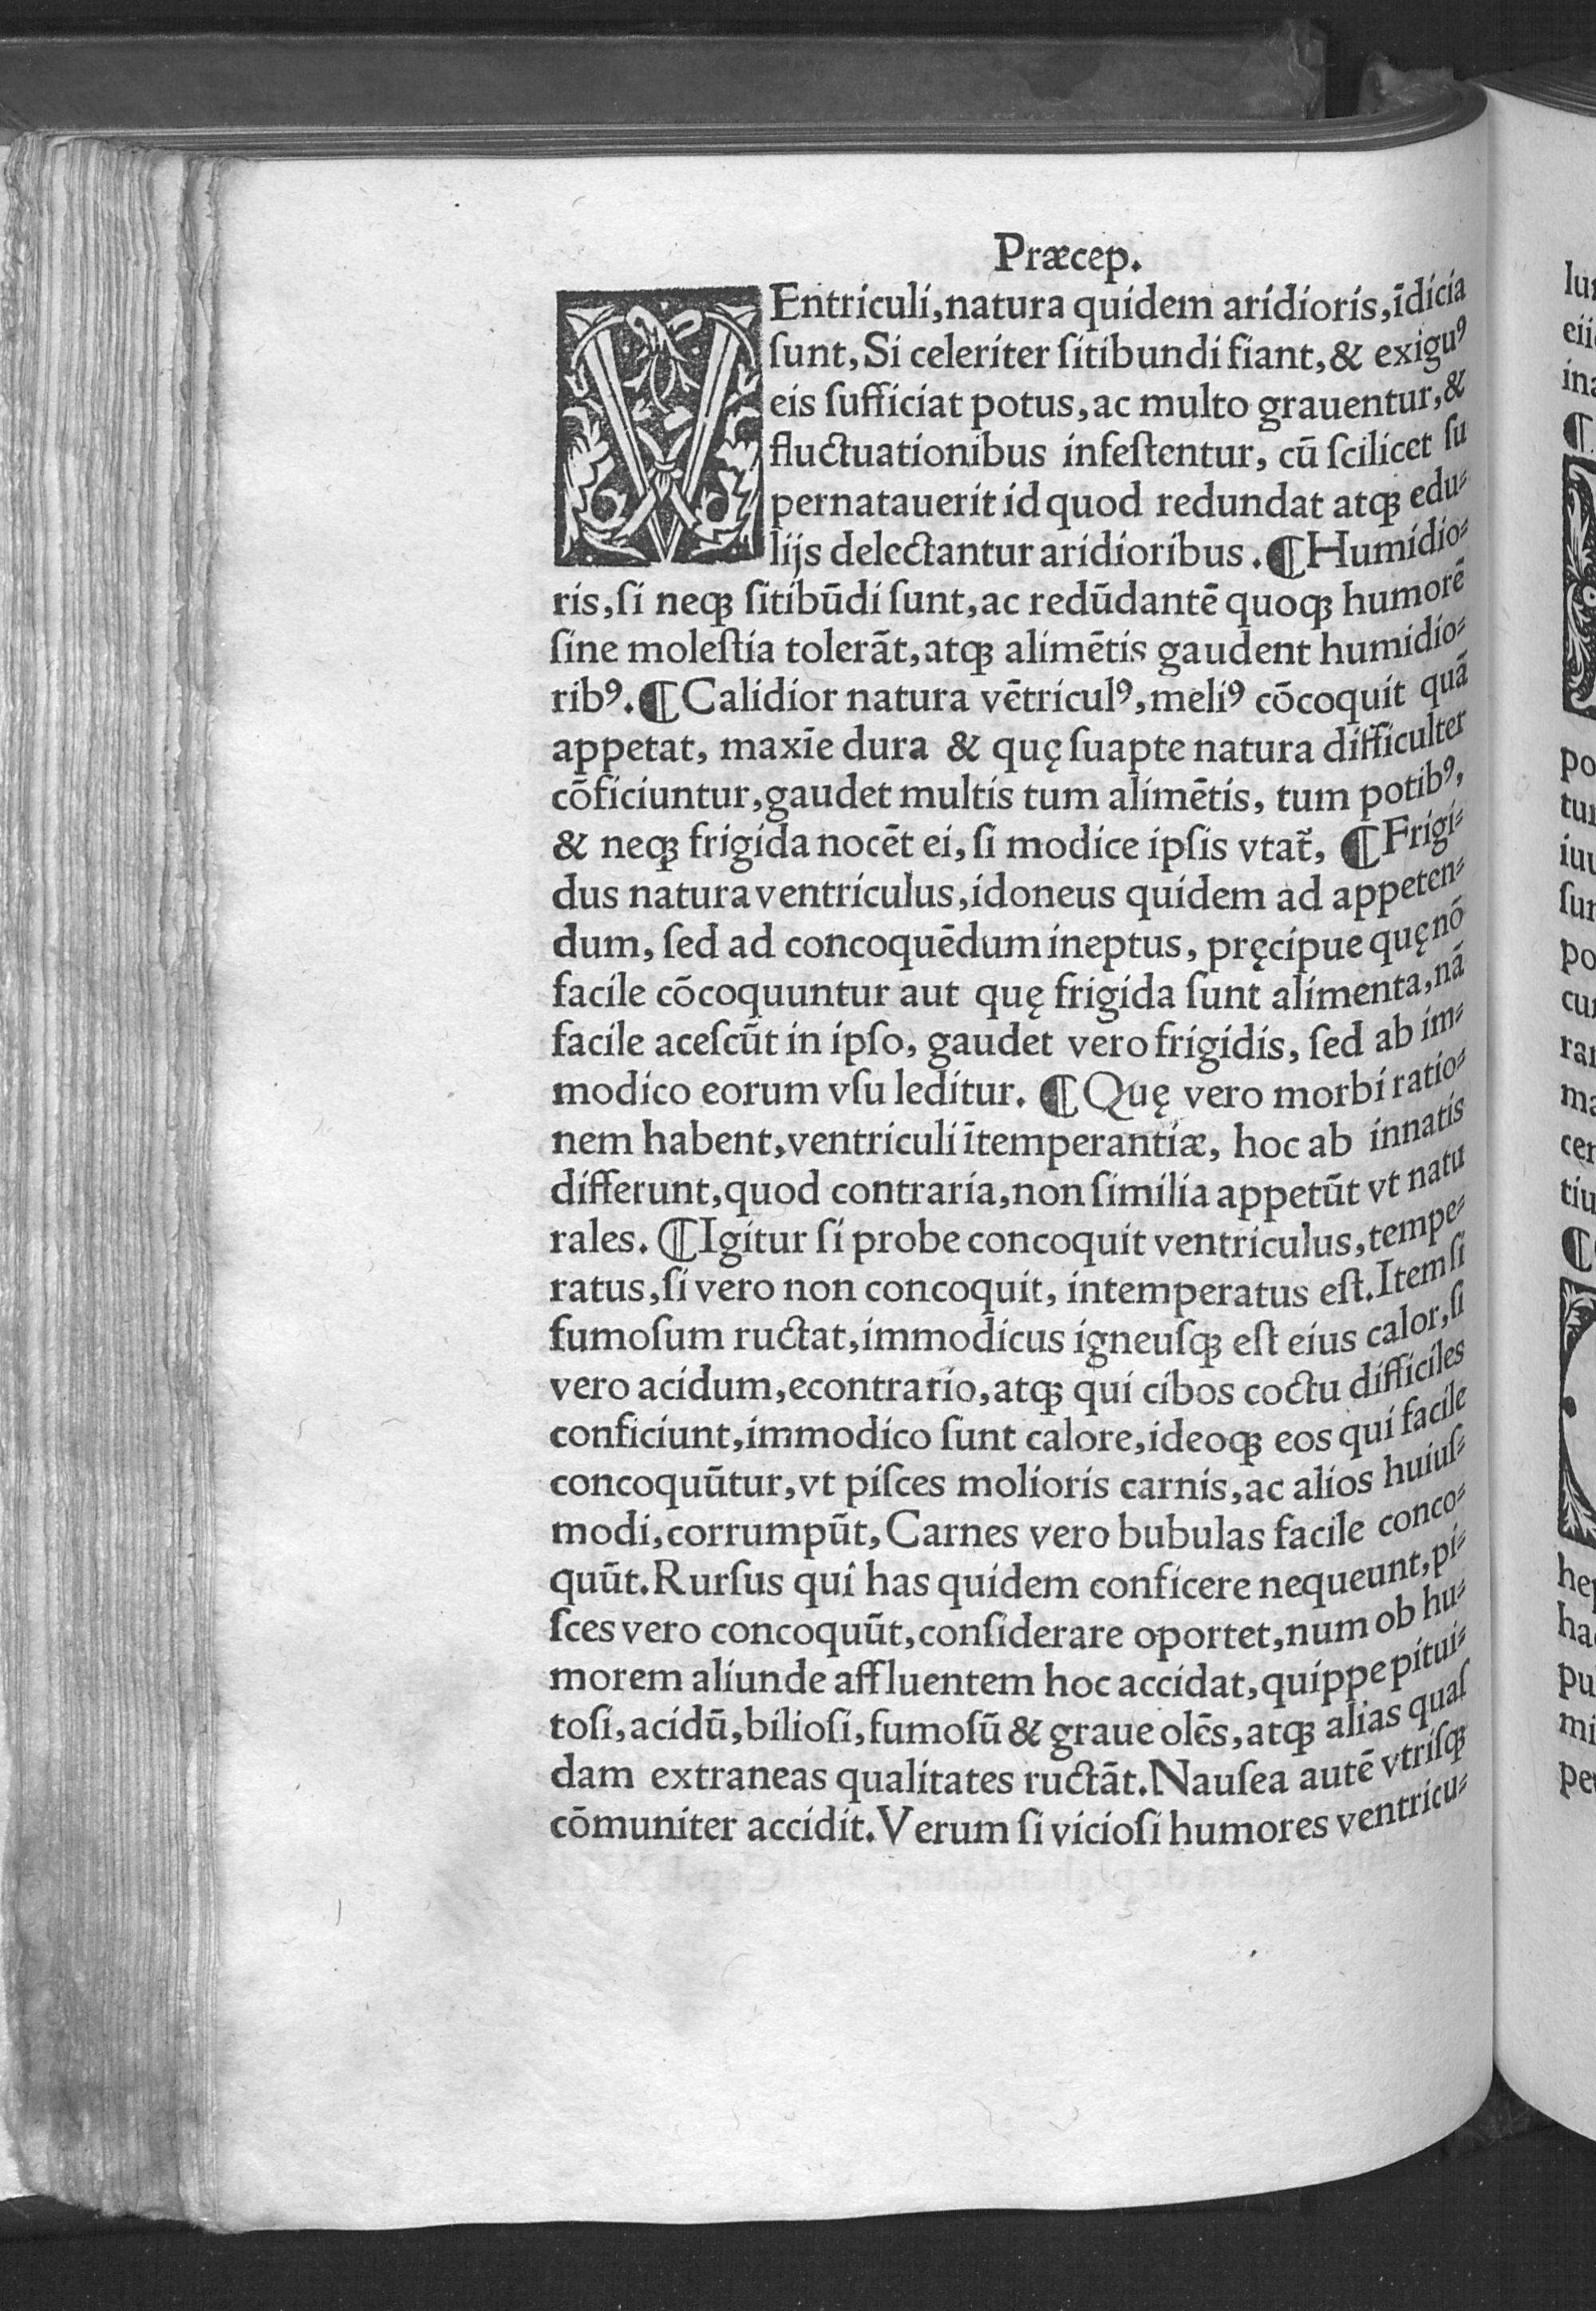 Præcep.
VEntriculi, natura quidem aridioris, īdicia
ſunt, Si celeriter ſitibundi fiant, & exiguꝰ
eis ſufficiat potus, ac multo grauentur, &
fluctuationibus infeſtentur, cū ſcilicet ſu
pernatauerit id quod redundat atqꝫ edu⸗
lijs delectantur aridioribus. ¶ Humidio⸗
ris, ſi neqꝫ ſitibūdi ſunt, ac redūdantē quoqꝫ humorē
ſine moleſtia tolerāt, atqꝫ alimētis gaudent humidio⸗
ribꝰ. ¶ Calidior natura vētriculꝰ, meliꝰ cōcoquit quā
appetat, maxīe dura & quę ſuapte natura difficulter
cōficiuntur, gaudet multis tum alimētis, tum potibꝰ,
& neqꝫ frigida nocēt ei, ſi modice ipſis vtat̃, ¶ Frigi⸗
dus natura ventriculus, idoneus quidem ad appeten⸗
dum, ſed ad concoquēdum ineptus, pręcipue quę nō
facile cōcoquuntur aut quę frigida ſunt alimenta, nā
facile aceſcūt in ipſo, gaudet vero frigidis, ſed ab im⸗
modico eorum vſu leditur. ¶ Quę vero morbi ratio⸗
nem habent, ventriculi ītemperantiæ, hoc ab innatis
differunt, quod contraria, non ſimilia appetūt vt natu
rales. ¶ Igitur ſi probe concoquit ventriculus, tempe⸗
ratus, ſi vero non concoquit, intemperatus eſt. Item ſi
fumoſum ructat, immodicus igneuſqꝫ eſt eius calor, ſi
vero acidum, econtrario, atqꝫ qui cibos coctu difficiles
conficiunt, immodico ſunt calore, ideoqꝫ eos qui facile
concoquūtur, vt piſces molioris carnis, ac alios huiuſ⸗
modi, corrumpūt, Carnes vero bubulas facile conco⸗
quūt. Rurſus qui has quidem conficere nequeunt, pi⸗
ſces vero concoquūt, conſiderare oportet, num ob hu⸗
morem aliunde affluentem hoc accidat, quippe pitui⸗
toſi, acidū, bilioſi, fumoſū & graue olēs, atqꝫ alias quaſ
dam extraneas qualitates ructāt. Nauſea autē vtriſqꝫ
cōmuniter accidit. Verum ſi vicioſi humores ventricu⸗